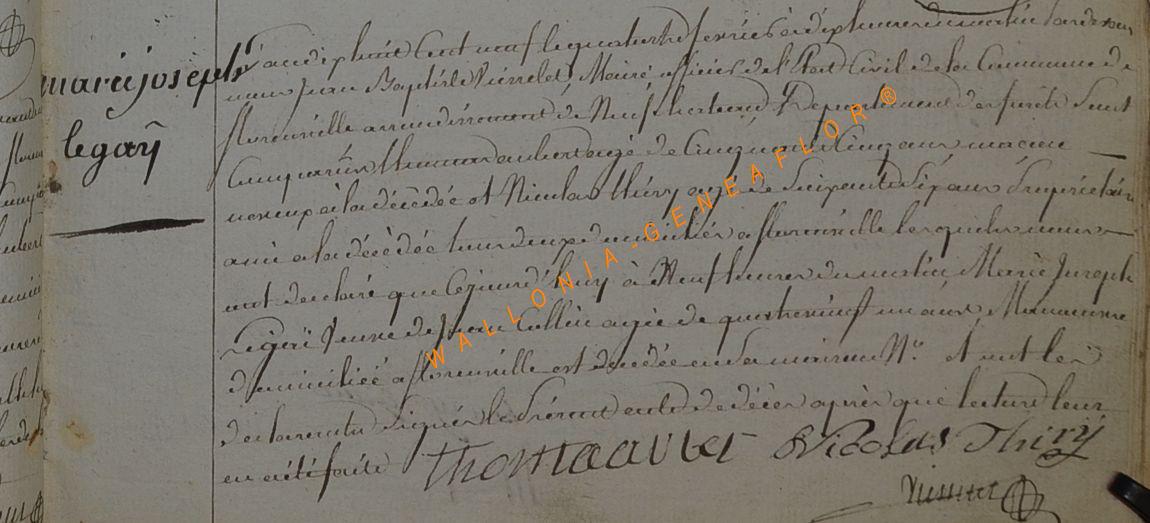 marie joseph
legaÿ
L'an dix huit cent neuf le quatorze fevrier à dix heures du matin par devant
nous Jean Baptiste Maire officier de l'Etat Civil de la Commune de
florenville arrondissement de Neufchateau Departement des forêts Sont
Comparus Thomas aubert agé de Cinquante Cinq ans macon
neveux a la décédée et Nicolas thiry agé de Soixante Six ans Proprietaire
ami a la décèdée tous deux domiciliés a florenville lesquels nous
ont declaré que Cejourd'huy à Neuf heures du matin Marie Joseph
Legaÿ veuve de Jean Collin agée de quatrevingt un ans
domiciliée a florenville est decedée en Sa maison No. et ont les
declarants Signés le Présent acte de décès après que lecture leur
en a été faite
Thomas auber Nicolas Thiry
WALLONIA-GENEAFLOR®